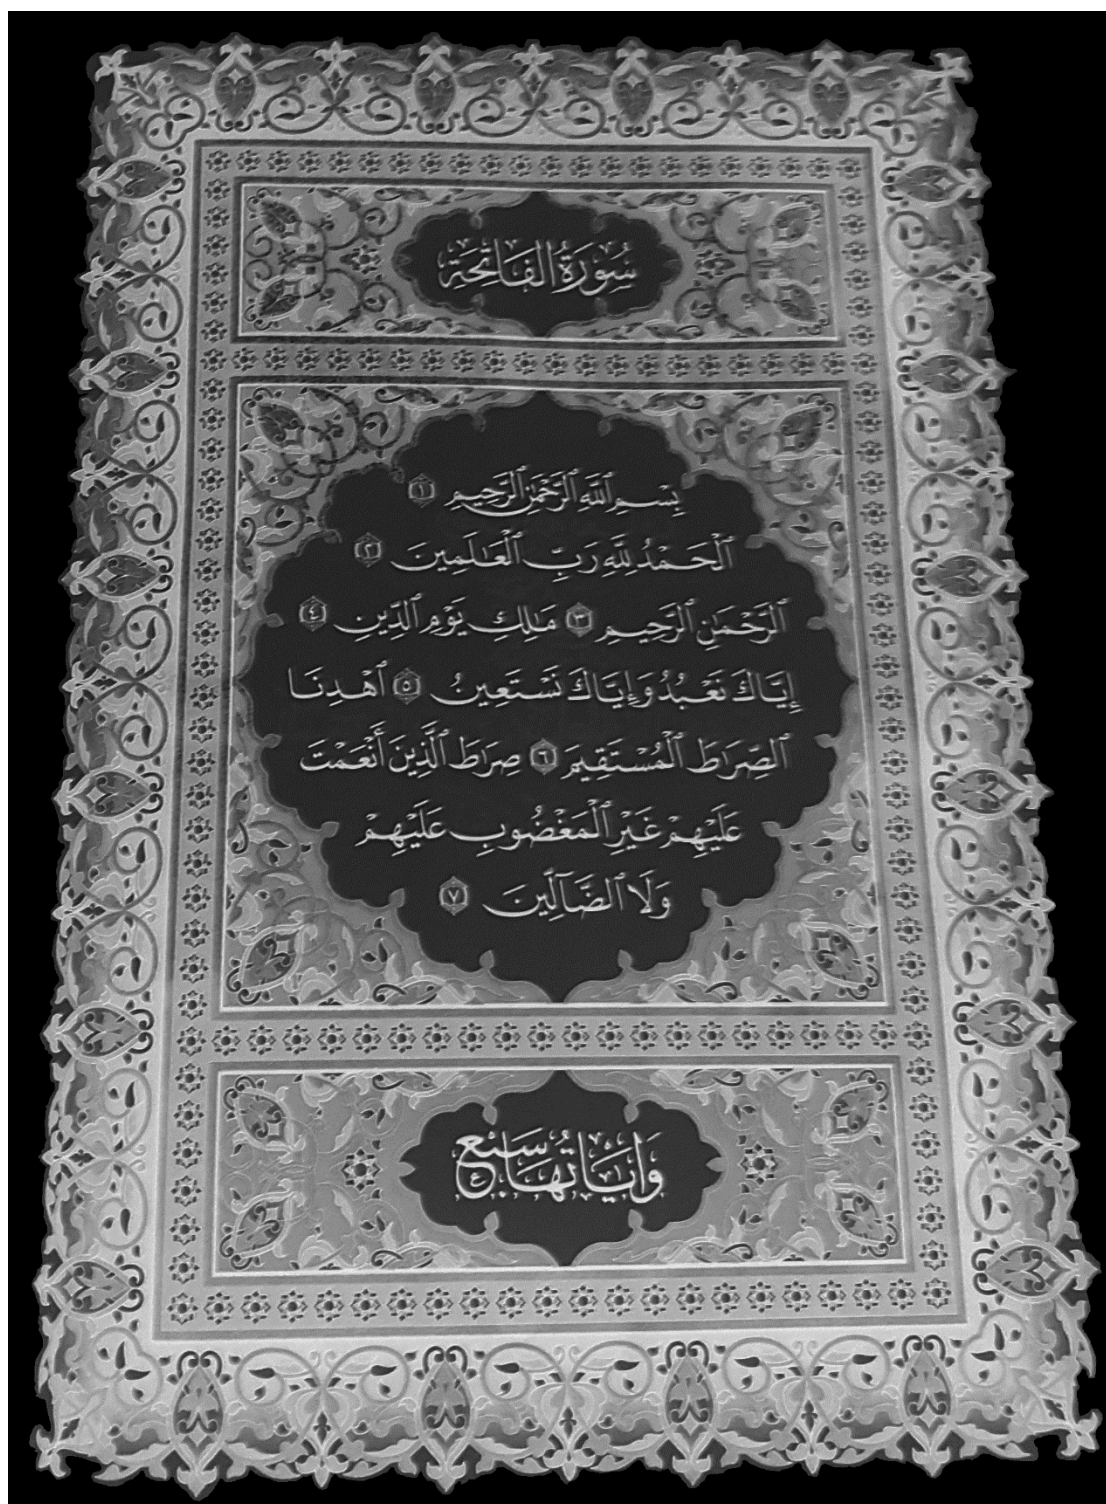 سُورَةُ الْفَاتِحَةِ
بِسْمِ ٱللَّهِ ٱلرَّحْمَٰنِ ٱلرَّحِيمِ ١
ٱلْحَمْدُ لِلَّهِ رَبِّ ٱلْعَٰلَمِينَ ٢
ٱلرَّحْمَٰنِ ٱلرَّحِيمِ ٣ مَٰلِكِ يَوْمِ ٱلدِّينِ ٤
إِيَّاكَ نَعْبُدُ وَإِيَّاكَ نَسْتَعِينُ ٥ ٱهْدِنَا
ٱلصِّرَٰطَ ٱلْمُسْتَقِيمَ ٦ صِرَٰطَ ٱلَّذِينَ أَنْعَمْتَ
عَلَيْهِمْ غَيْرِ ٱلْمَغْضُوبِ عَلَيْهِمْ
وَلَا ٱلضَّآلِّينَ ٧
وَاٰيَاتُهَا سَبْعٌ